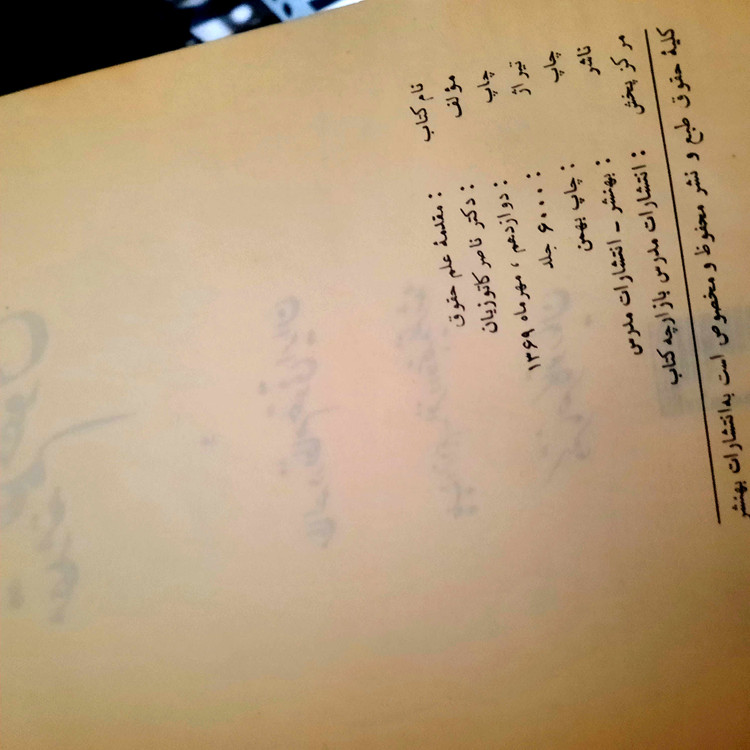 نام کتاب : مقدمهٔ علم حقوق
مؤلف : دکتر ناصر کاتوزیان
چاپ : دوازدهم ، مهرماه ۱۳۶۹
تیراژ : ۶۰۰۰ جلد
چاپ : چاپ بهمن
ناشر : بهنشر - انتشارات مدرس
مرکز پخش : انتشارات مدرس بازارچه کتاب
کلیهٔ حقوق طبع و نشر محفوظ و مخصوص است به‌انتشارات بهنشر